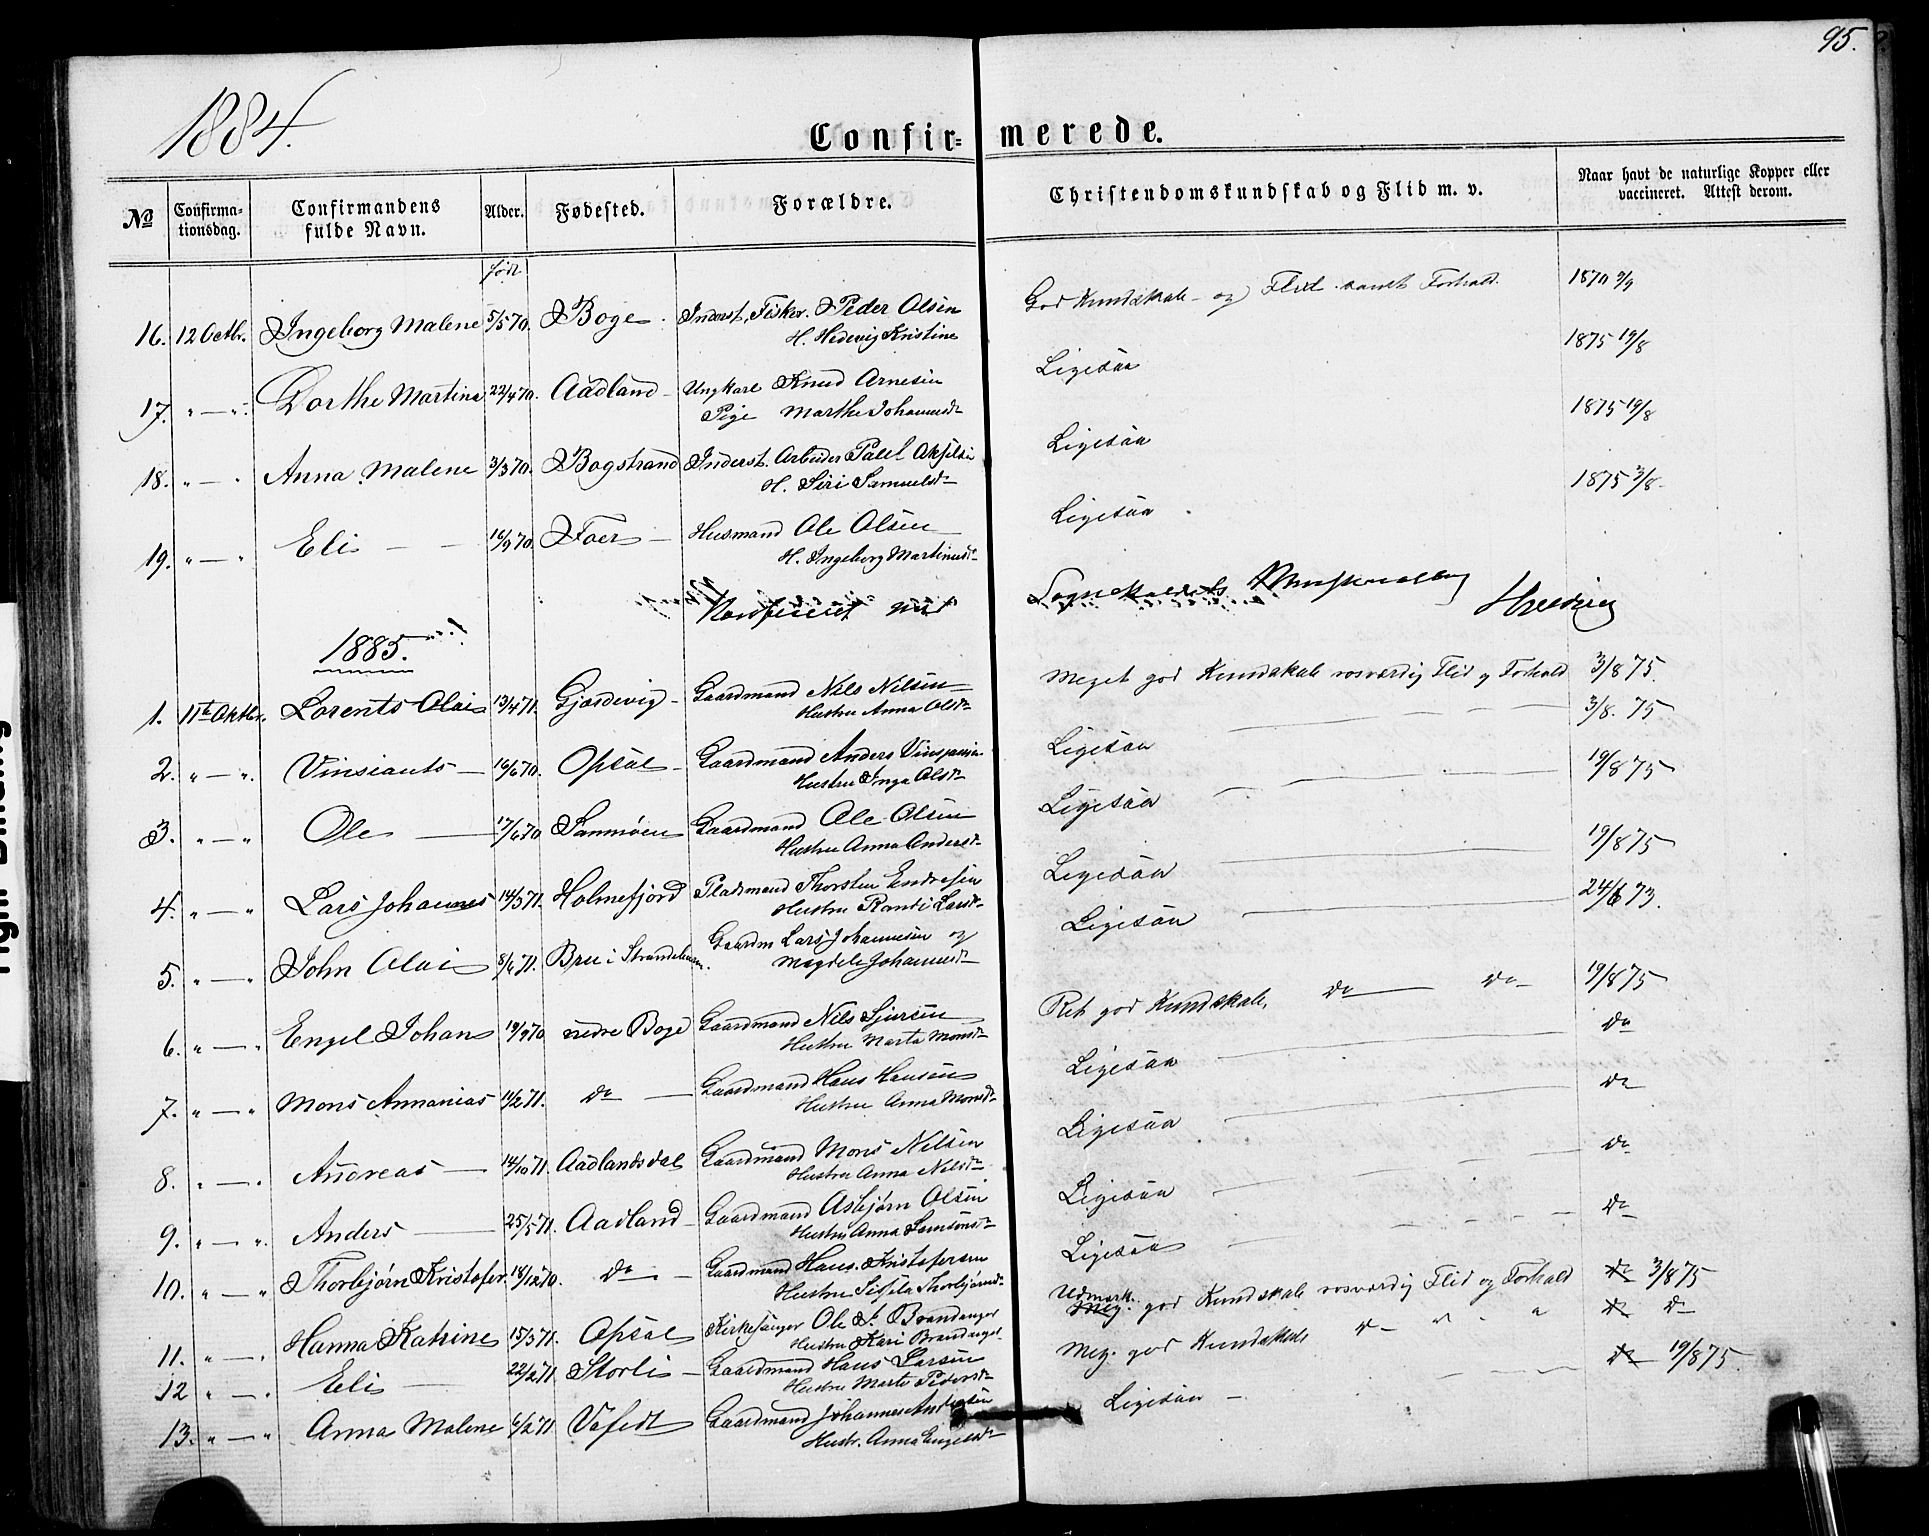 95.
1884.
Confir= merede.
No
Confirma-tionsdag.
Confirmandens fulde Navn.
Alder.
Fødested.
Forældre.
Christendomskundskab og Flid m. v.
Naar havt de naturlige Kopper eller vaccineret. Attest derom.
født
16. 12 Octbr. Ingeborg Malene 5/5 70. Boge. Inderst, Fisker. Peder Olsen God Kundskab og Flid samt Forhold. 1870 9/9
H. Hedevig Kristine
17. " — " Dorthe Martina 22/4 70. Aadland — Ungkarl Knud Arnesen Ligesaa 1875 19/8
Pige Marthe Johannesdr
18. " — " Anna Malene 3/3 70. Bogstrand Inderst. Arbeider Ligesaa 1875 19/8
H. Siri Samuelsdr
19. " — " Eli — — 16/9 70. Foer — Husmand Ole Olsen Ligesaa 1875 3/8
H. Ingeborg Martinusdr
1885.
1. 11te Oktbr. Lorents Olai 13/4 71. Gjærdevig — Gaardmand Nils Nilsen Meget god Kundskab rosværdig Flid og Forhold 3/8 75.
Hustru Anna Olsdr
2. " — " Vinsiants — 16/6 70. Opsal — Gaardmand Anders Ligesaa 3/8. 75
Hustru Inga Olsdr
3. " — " Ole — 17/6 70. Sannøen Gaardmand Ole Olsen Ligesaa 19/8 75
Hustru Anna Andersdr
4. " — " Lars Johannes 14/5 71. Holmefjord Pladsmand Thorsten Endresen Ligesaa 19/8 75
Hustru Randi Larsdr
5. " — " John Olai 8/6 71. Bru i Gaardm Lars Johannesen og Ligesaa 24/6 73.
Magdele Johannesdr
6. " — " Engel Johan 19/9 70 nedre Boge Gaardmand Nils Sjursen Ret god Kundskab, do — do 19/8 75
Hustru Marta Monsdr
7. " — " Mons Annanias 11/2 71. do — Gaardmand Hans Hansen Ligesaa do
Hustru Anna Monsdr
8. " — " Andreas — 14/10 71. Aadlandsdal Gaardmand Mons Nilsen Ligesaa do
Hustru Anna Nilsdr
9. " — " Anders — 25/5 71. Aadland — Gaardmand Asbjørn Olsen Ligesaa do
Hustru Anna Samsonsdr
10. " — " Thorbjørn Kristofer 18/12 70. do — Gaardmand Hans Kristofersen Ligesaa do
Hustru Sissela Thorbjørnsdr
11. " — " Hanna Katrine 15/3 71. Opsal Kirkesanger Ole J. Brandanger Udmerk. Meg. god Kundskab rosværdig Flid og Forhold do 3/8 75
Hustru Kari Brandanger
12 " — " Eli — 22/2 71. Storli — Gaardmand Hans Larsen Meg. god Kundskab do " " do do
Hustru Marta Pedersdr
13. " — " Anna Malene 6/2 71 Vefedt Gaardmand Johannes Ligesaa — do 19/8 75.
Hustr. Anna Engelsdr